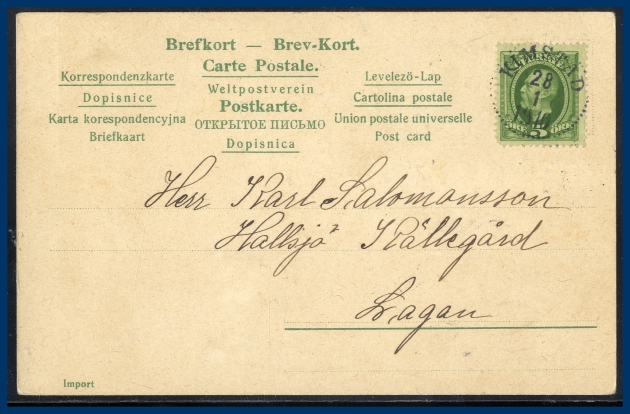 Brefkort — Brev-Kort.
Carte Postale.
Korrespondenzkarte
Weltpostverein
Levelezö-Lap
Dopisnice
Postkarte.
Cartolina postale
Karta korespondencyjna
ОТКРЫТОЕ ПИСЬМО
Union postale universelle
Briefkaart
Dopisnica
Post card
KIMSTAD
28
1
5 ÖRE
Herr Karl Salomonsson
Hallsjö Källegård
Lagan
Import